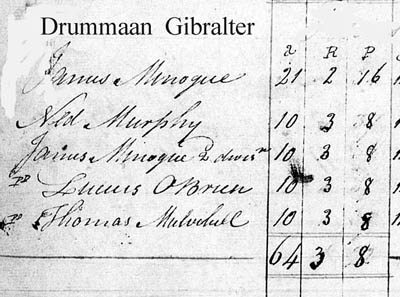 Drummaan Gibralter
a R P
James Minogue 21 2 16
Ned Murphy 10 3 8
James Minogue 2 10 3 8
Lucius OBrien 10 3 8
Thomas Mulvihill 10 3 8
64 3 8